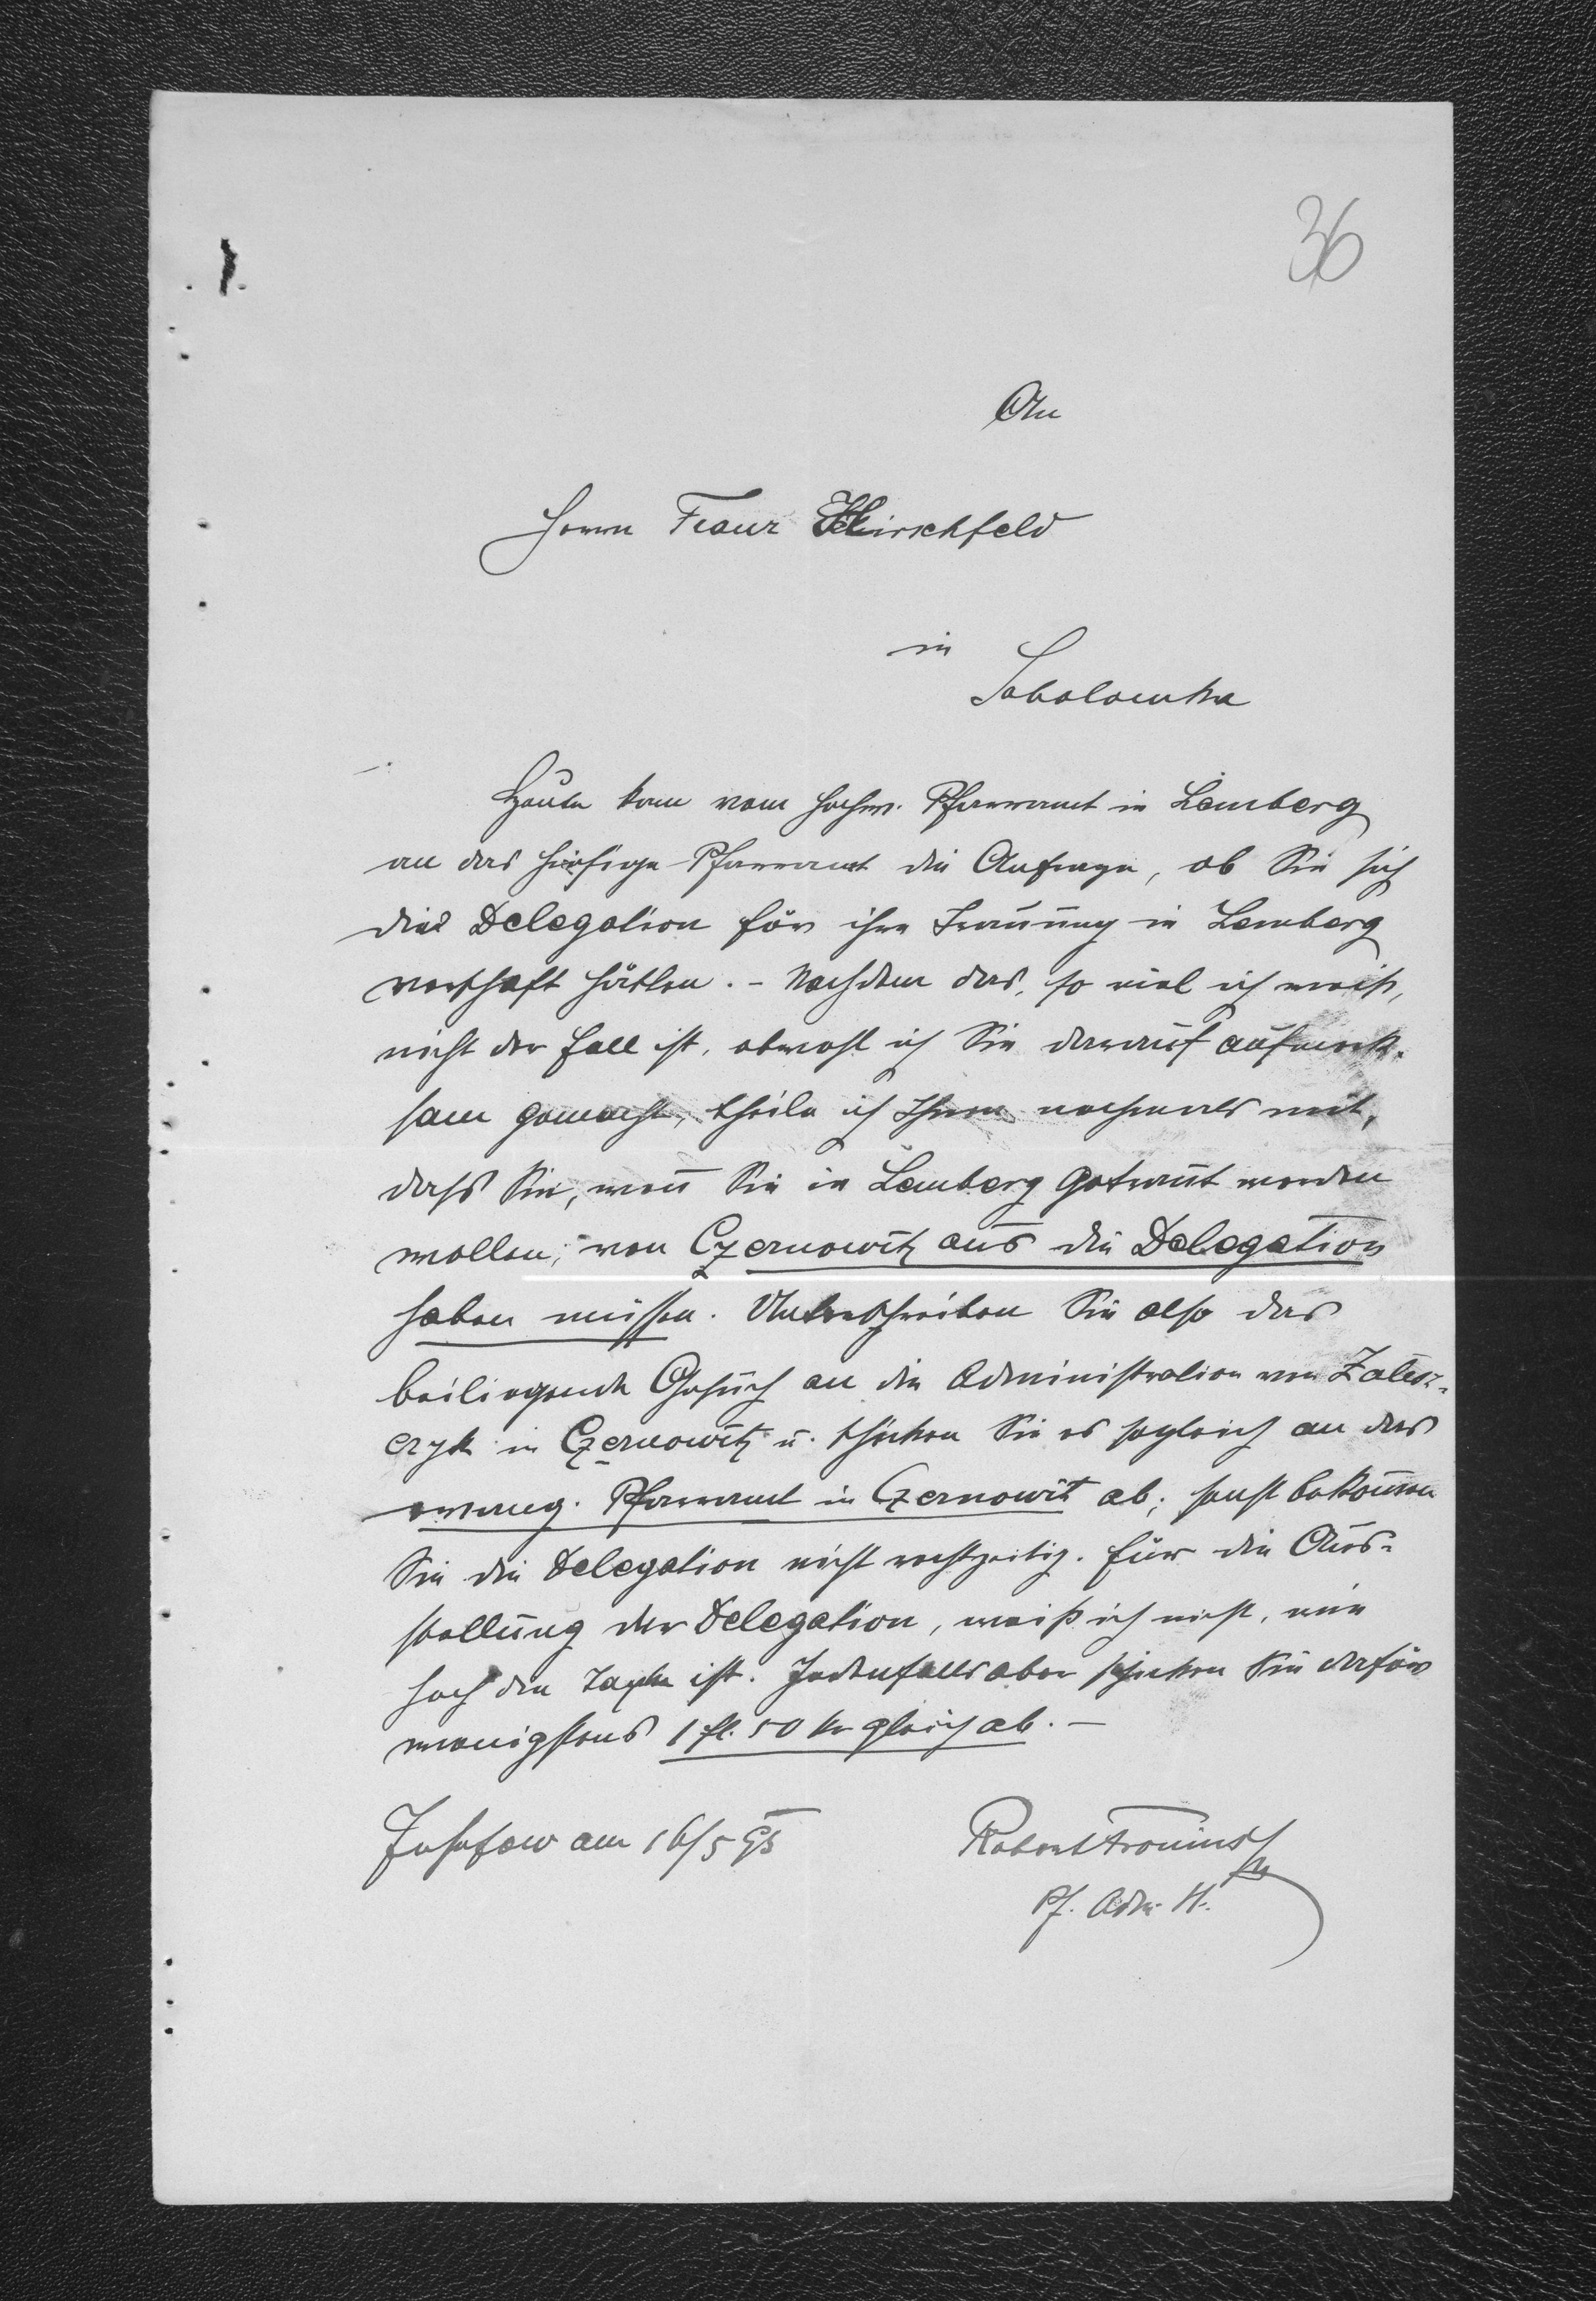 36
An
Herrn Franz Hirschfeld
in
Sobolowka
Heute kam vom hochw. Pfarramt in Lemberg
an das hiesige Pfarramt die Anfrage, ob Sie sich
die Delegation für ihre Trauung in Lemberg
verschafft hätten. - Nachdem das, so viel ich weiß,
nicht der Fall ist, obwohl ich Sie darauf aufmerk-
sam gemacht, theile ich Ihnen nochmals mit,
dass Sie, wenn Sie in Lemberg getraut werden
wollen, von Czernowitz aus die Delegation
haben müssen. Unterschreiben Sie also das
beiliegende Gesuch an die Administration von Zalesz-
czyk in Czernowitz u. schicken Sie es sogleich an das
evang. Pfarramt in Czernowitz ab; sonst bekommen
Sie die Delegation nicht rechtzeitig. Für die Aus-
stellung der Delegation, weiß ich nicht, wie
hoch die Taxe ist. Jedenfalls aber schicken Sie dafür
wenigstens 1 fl. 50 kr gleich ab. -
Josefow am 16/5 95
Robert
Pf. Adm.